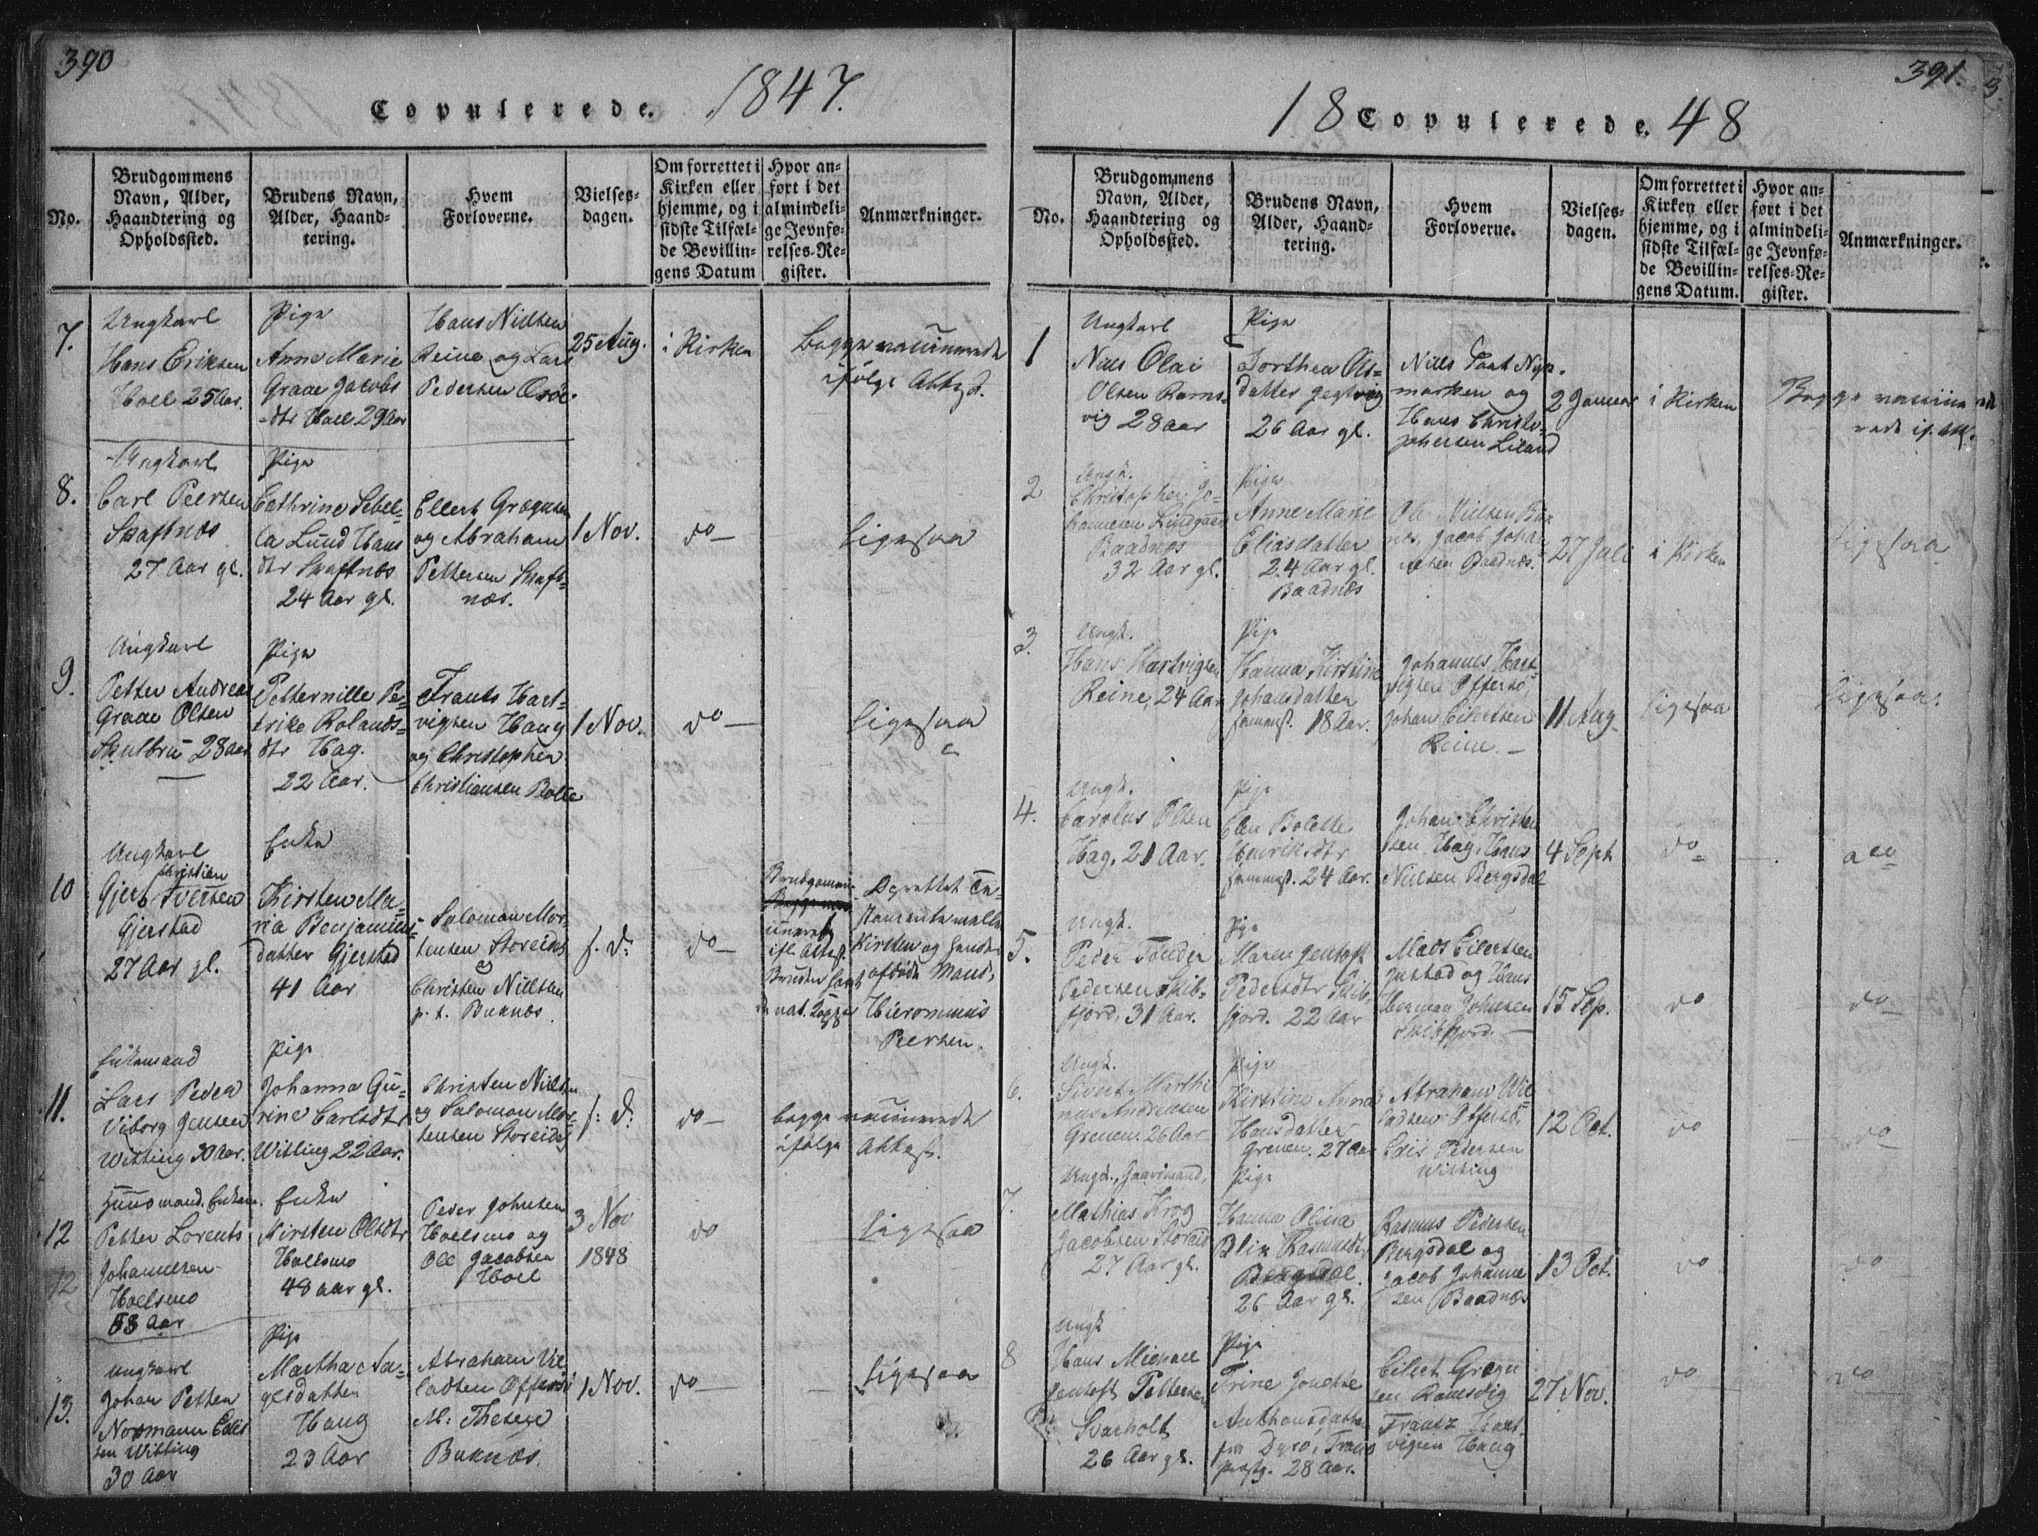 390
Copulerede. 1847.
No.
Brudgommens Navn, Alder, Haandtering og Opholdssted.
Brudens Navn, Alder, Haandtering.
Hvem Forloverne.
Vielsesdagen.
Om forrettet i Kirken eller hjemme, og i sidste Tilfælde Bevillingens Datum
Hvor anført i det almindelige Jevnførelses-Register.
Anmærkninger.
7.
Ungkarl
Hans Eriksen
Hoel 25 Aar.
Pige
Anne Marie
Graae Jacobs
-dtr Hoel 29 Aar
Hans Nielsen
Reine og Lars
Pedersen
25 Aug.
i Kirken
Begge vaccinerede
ifølge Attest.
8.
Ungkarl
Carl Peersen
Skaftnæs
27 Aar gl.
Pige
Cathrine Sebel-
la Lund Hans
dtr Skaftnæs
24 Aar gl.
Ellert Gregusen
og Abraham
Pettersen Skaft-
næs.
1 Nov.
do
Ligesaa
9.
Ungkarl
Petter Andreas
Graae Olsen
Skulbru 28 aar
Pige
Petternille Pe-
trike Rolands-
dtr Hag.
22 Aar.
Frants Hart-
vigsen Haug
og Christopher
Christiansen Bolle
1 Nov.
do
Ligesaa
10
Ungkarl
Christian
Gjert Iversen
Gjerstad
27 Aar gl.
Enke
Kirsten Ma-
ria Benjamins-
datter Gjerstad
41 Aar
Salomon Mor-
tensen Storeids
og
Christen Nielsen
p. t. Buknæs
f. d.
do
Brudgommen
ifl. Attest.
Bruden havt
de nat. Kopper
Oprettet Te-
stamente mellem
Kirsten og hendes
afdøde Mand,
Hieronimus
Peersen.
11.
Enkemand
Lars Peder
Viborg Jensen
Witting 30 Aar.
Pige
Johanna Gu-
rine Carlsdtr
Witting 22 Aar.
Christen Nielsen
og Salomon Mor-
tensen Storeids
f. d.
do
begge vaccinerede
ifølge Attest.
12
12
Huusmand. Enkem.
Petter Lorents
Johannesen
Hoelsmo
53 Aar
Enke
Kirsten Olsdtr
Hoelsmo
48 aar gl.
Peder Johnsen
Hoelsmo og
Ole Jacobsen
Hoel
3 Nov
1848
do
Ligesaa
13.
Ungkarl
Johan Petter
Normann Edis
sen Witting
30 Aar
Pige
Martha Aa-
gesdatter
Haug
23 Aar
Abraham Vil
ladsen Offersø
M: Thesen
Buknæs.
1 Nov.
do
Ligesaa
391.
18 Copulerede. 48
No.
Brudgommens Navn, Alder, Haandtering og Opholdssted.
Brudens Navn, Alder, Haandtering.
Hvem Forloverne.
Vielsesdagen.
Om forrettet i Kirken eller hjemme, og i sidste Tilfælde Bevillingens Datum.
Hvor anført i det almindelige Jevnførelses-Register.
Anmærkninger.
1
Ungkarl
Niels Olai
Olsen Rams-
vig 28 aar
Pige
Dorthea Ols-
datter
26 Aar gl.
Niels
marken og
Hans Christo-
phersen Liland
2 Januar
i Kirken
Begge vaccine
rede if. Att.
2
Ungk.
Christopher Jo-
hannesen Lindgaard
Baadnæs
32 Aar gl.
Pige
Anne Marie
Eliasdatter
24 Aar gl.
Baadnæs
Ole Nielsen
Jacob Johan
nesen Baadnæs.
27 Juli
i Kirken
Ligesaa
3
Ungk.
Hans Hartvigsen
Reine, 24 Aar
Pige
Hanna Kirstine
Johansdatter
sammest. 18 Aar.
Johannes Hart
vigsen Offersø,
Johan Eilertsen
Reine.
11 Aug
Ligesaa
Ligesaa.
4.
Ungk.
Carolus Olsen
Hag, 21 Aar.
Pige
Elen Bolette
Henriksdtr
sammest. 24 Aar.
Johan Christen
sen Hag, Hans
Nielsen Bergsdal
4 Sept
do
do
5.
Ungk.
Peder Tønder
Pedersen Skib-
fjord, 31 Aar.
Pige
Maren Jentoft
Pedersdtr Skib-
fjord. 22 Aar
Mads Eilertsen
Justad og Hans
Herman Johnsen
Skibfjord.
15 Sep.
do
do
6.
Ungk.
Sivert Marthi
nus Andreasen
Grenen. 26 Aar
Pige
Kirstine Anna
Hansdatter
Grenen. 27 Aar
Abraham Wil-
ladsen Offersø.
Edis Pedersen
Witting
12 Oct.
do
do
7.
Ungk., Gaardmand,
Mathias Krog
Jacobsen Storeid
27 Aar gl.
Pige
Hanna Olina
Blix Rasmusdtr
Bergsdal.
26 Aar gl.
Rasmus Pedersen
Bergsdal og
Jacob Johanne
sen Baadnæs
13 Oct.
do
do
8
Ungk
Hans Michael
Jentoft Pettersen
Svarholt
26 Aar gl.
Pige
Trine Jonette
Anthonsdatter
fra Dyrø, Trans
præstg. 28 Aar.
Eilert Gregu
sen Ramsvig
Frantz Hart
vigsen Haug
27 Nov.
do
do